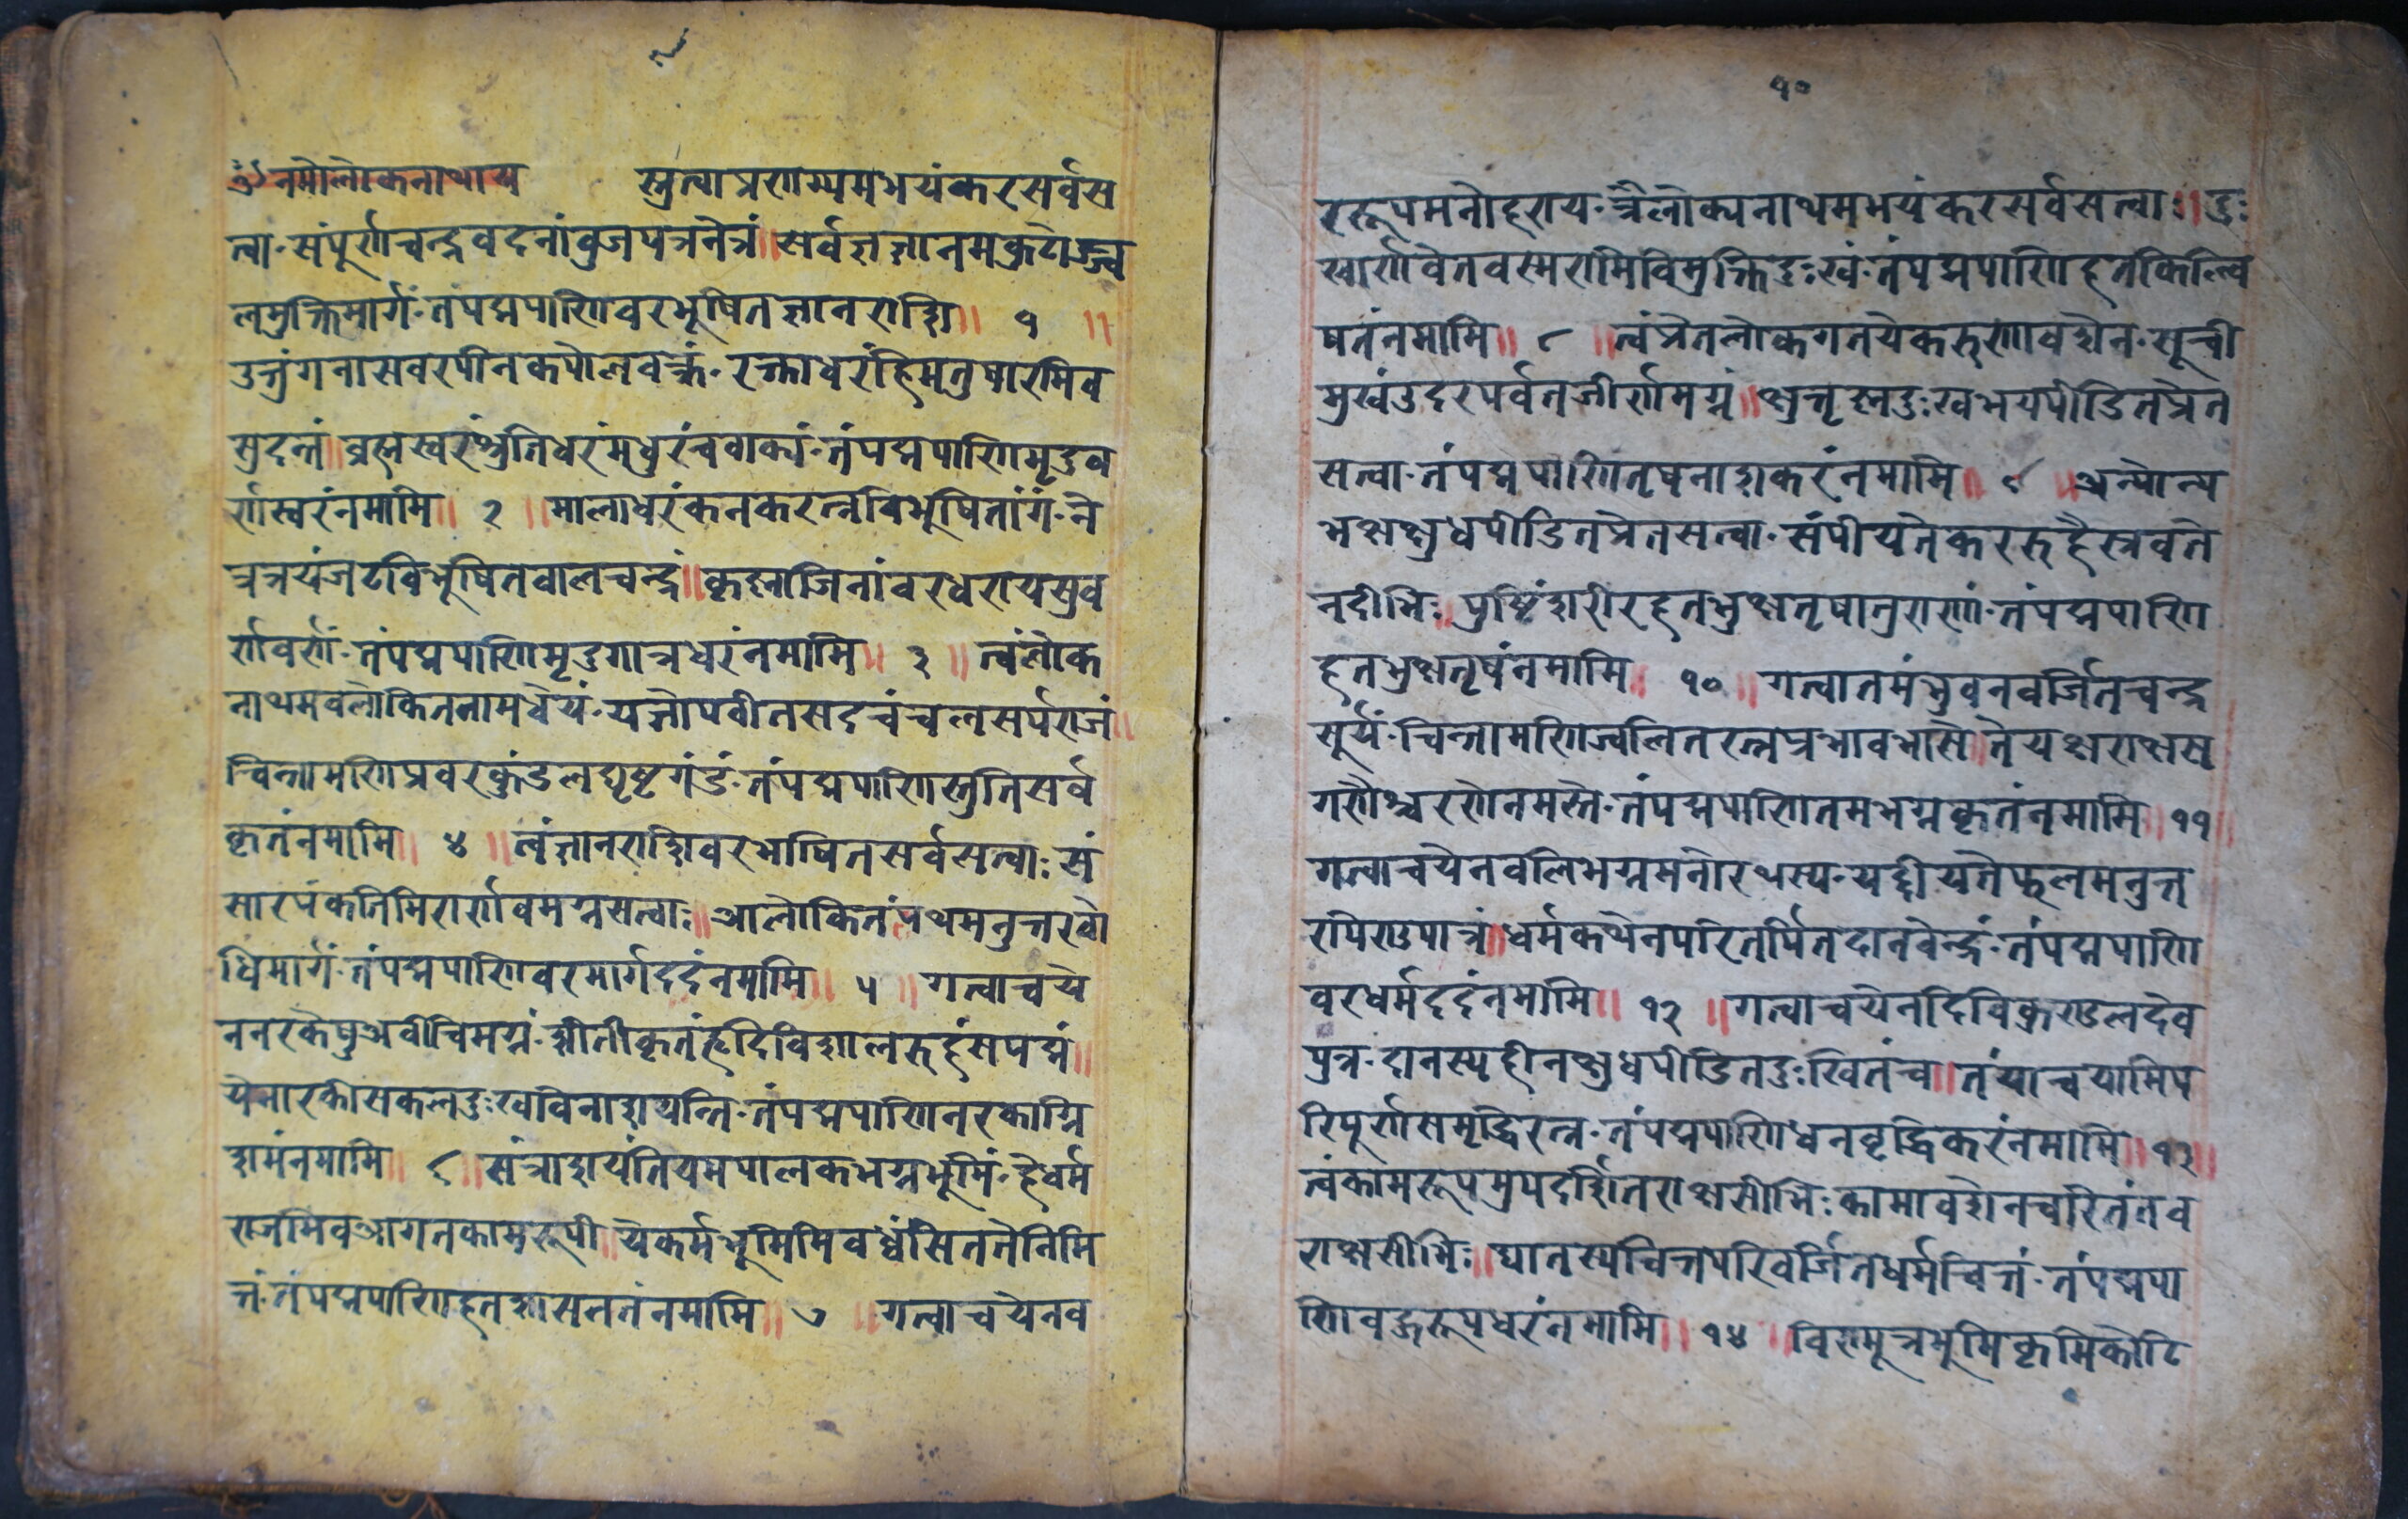 ९
ॐ नमो लोकनाथाय स्तुत्वा प्रणाम्यमभयंकरसर्वस
त्वा॰ संपूर्णचन्द्रवदनांवुजपत्रनेत्रं॥ सर्वज्ञज्ञानमकुटोज्ज्व
लमुक्तिमार्गं॰ तंपद्मपाणिवरभूषितज्ञानराशि॥ १ ॥
उत्तुंगनासवरपीनकपोलवक्त्रं॰ रक्ताधरंहिमतुषारमिव
सुदन्तं॥ व्रह्मस्वरंश्रुतिधरंमधुरंचवाक्यं॰ तंपद्मपाणिमृदुव
र्णस्वरंनमामि॥ २ ॥ मालाधरंकनकरत्नविभूषितांगं॰ ने
त्रत्रयंजटविभूषितवालचन्द्रं॥ कृष्णाजिनांवरधरायसुव
र्णवर्णं॰ तंपद्मपाणिमृदुगात्रधरंनमामि॥ ३ ॥ त्वंलोक
नाथमवलोकितनामधेयं॰ यज्ञोपवीतसदचंचलसर्पराजं॥
चिन्तामणिप्रवरकुंडलघृष्टगंडं॰ तंपद्मपाणिस्तुतिसर्व
कृतंनमामि॥ ४ ॥ त्वंज्ञानराशिवरभाषितसर्वसत्वाः सं
सारपंकतिमिरार्णवमग्नसत्वाः॥ आलोकितंपथमनुत्तरवो
धिमार्गं॰ तंपद्मपाणिवरमार्गददंनमामि॥ ५ ॥ गत्वाचये
ननरकेषुअवीचिमग्नं॰ शीतीकृतंहृदिविशालरुहंसपद्मं॥
येनारकीसकलदुःखविनाशयन्ति॰ तंपद्मपाणिनरकाग्नि
शमंनमामि॥ ६ ॥ संत्राशयंतियमपालकभग्नभूमिं॰ हेधर्म
राजमिवआगतकामरूपी॥ येकर्मभूमिमिवध्वंसिततेनिमि
त्तं॰ तंपद्मपाणिहतशासनतंनमामि॥ ७ ॥ गत्वाचयेनव
१०
ररूपमनोहराय॰ त्रैलोक्यनाथमभयंकरसर्वसत्वाः॥ दुः
खार्णवेतवस्मरामिविमुक्तिदुःखं॰ तंपद्मपाणिहतकिल्वि
षतंनमामि॥ ८ ॥ त्वंप्रेतलोकगतयेकरुणावशेन॰ सूची
मुखंउदरपर्वतजीर्णमग्नं॥ क्षुत्तृष्णदुःखभयपीडितप्रेत
सत्वा॰ तंपद्मपाणितृषनाशकरंनमामि॥ ९ ॥ अन्योन्य
भक्षक्षुधपीडितप्रेतसत्वा॰ संपीयतेकररुहैस्रवते
नदीभिः॥ पुष्टिंशरीरहतभुक्षतृषातुराणां॰ तंपद्मपाणि
हतभुक्षतृषंनमामि॥ १० ॥ गत्वातमंभुवनवर्जितचन्द्र
सूर्यं॰ चिन्तामणिज्वलितरत्नप्रभावभासै॥ तेयक्षराक्षस
गणैश्चरणेनमस्ते॰ तंपद्मपाणितमभग्नकृतंनमामि॥ ११ ॥
गत्वाचयेनवलिभग्नमनोरथस्य॰ यद्दीयतेफलमनुत्त
रपिण्डपात्रं॥ धर्मकथेनपरितर्पितदानवेन्द्रं॰ तंपद्मपाणि
वरधर्मददंनमामि॥ १२ ॥ गत्वाचयेनदिविकुण्डलदेव
पुत्र॰ दानस्यहीनक्षुधपीडितदुःखितंच॥ तंयाचयामिप
रिपूर्णसमृद्धिरत्न॰ तंपद्मपाणिधनवृद्धिकरंनमामि॥ १३ ॥
त्वंकामरूपमुपदर्शितराक्षसीभिः कामावशेनचरितंतव
राक्षसीभिः॥ घातस्यचित्तपरिवर्जितधर्मचित्तं॰ तंपद्मपा
णिवज्ररूपधरंनमामि॥ १४ ॥ विण्मूत्रभूमिकृमिकोटि